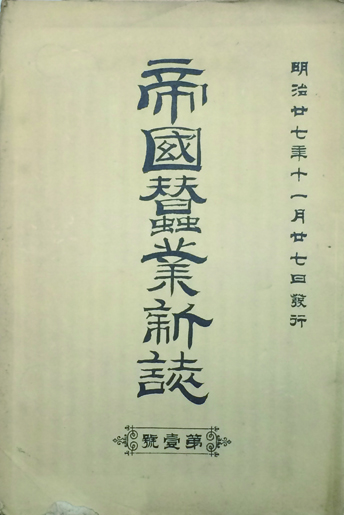 明治廿七年十一月廿七日發行
帝國蠶業新誌
第壹號